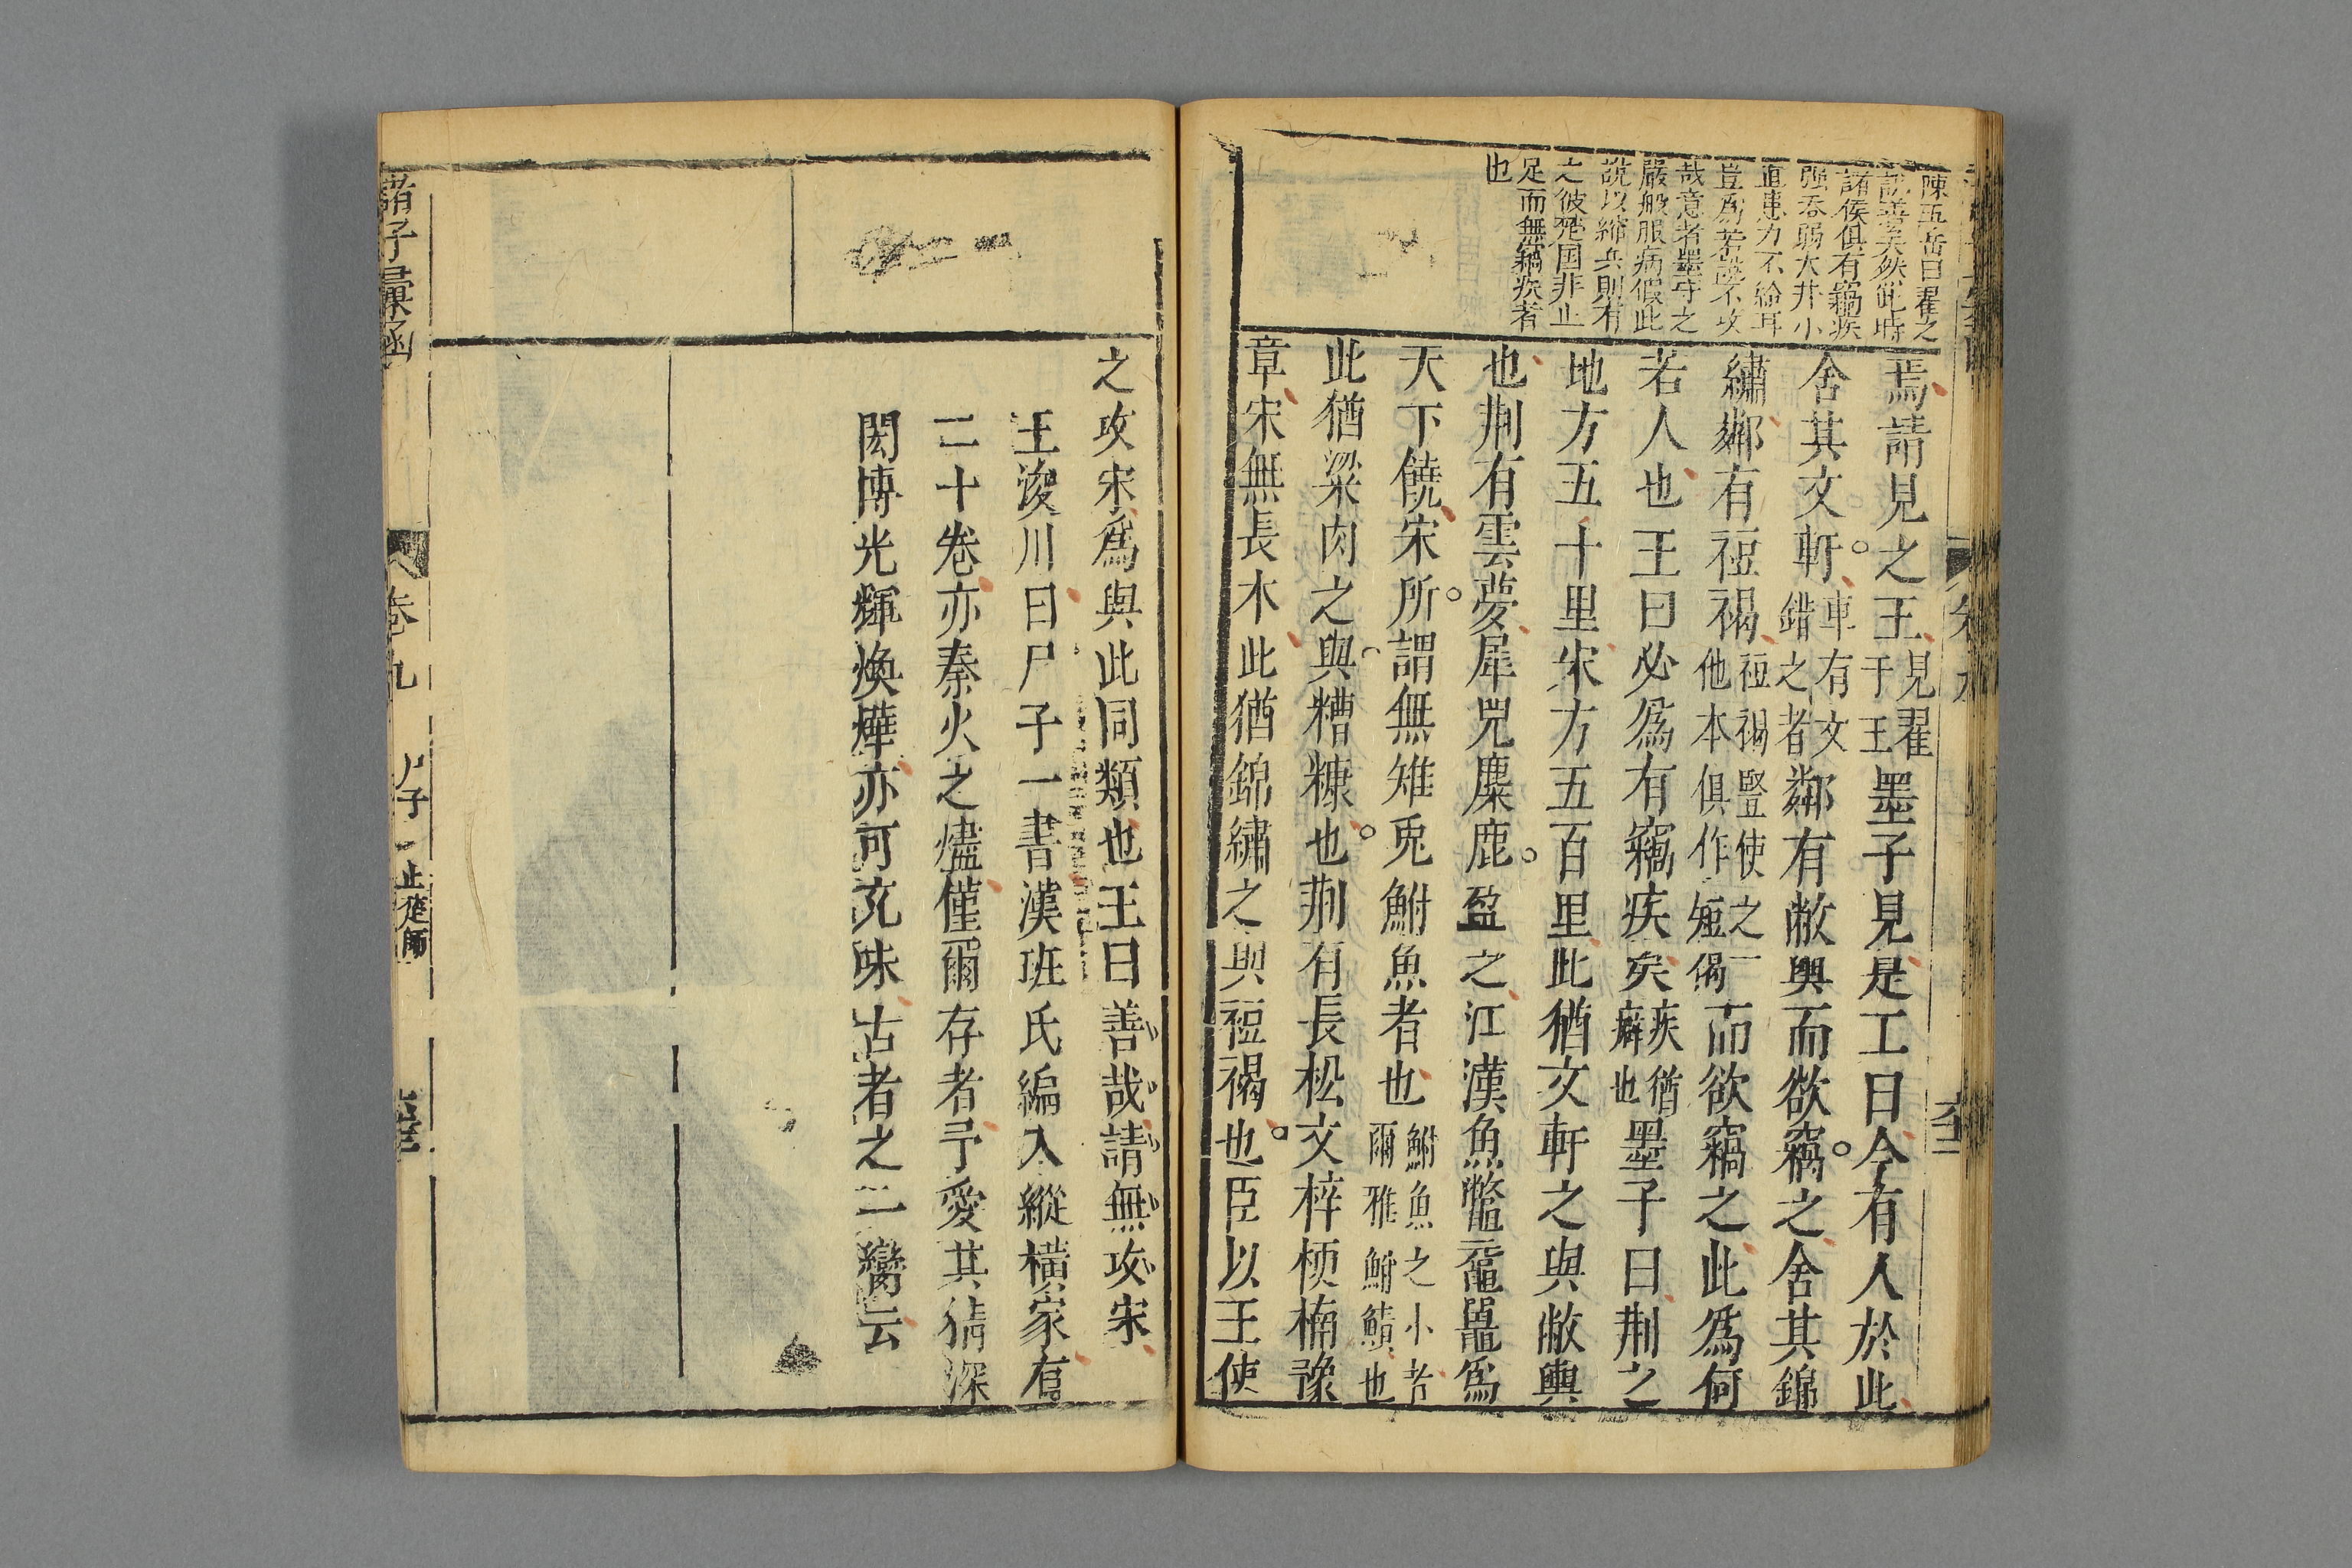 陳五岳曰翟之
說善矣然此時
諸侯俱有竊疾
强吞弱大并小
直患力不給耳
豈爲若說不攻
哉意者墨守之
嚴般服病假此
說以締兵則有
之彼楚国非止
足而無竊疾者
也
焉請見之王見翟于王墨子見是工曰今有人於此
舍其文軒車有文錯之者鄰有敝輿而欲竊之舍其錦
繡鄰有裋褐裋褐豎使之一他本俱作短褐而欲竊之此爲何
若人也王曰必爲有竊疾矣疾猶癖也墨子曰荆之
地方五十里宋方五百里此猶文軒之與敝輿
也荆有雲夢犀兕麋鹿盈之江漢魚鱉黿鼉爲
天下饒宋所謂無雉兎鮒魚者也鮒魚之小者爾雅鮒鰿也
此猶粱肉之與糟糠也荆有長松文梓楩楠豫
章宋無長木此猶錦繡之與裋褐也臣以王使
之攻宋爲與此同類也王曰善哉請無攻宋
王浚川曰尸子一書漢班氏編入縱橫家有
二十卷亦秦火之燼僅爾存者予愛其猜深
閎博光輝煥燁亦可充味古者之二臠云
諸子彙函
卷九
尸子
止楚師